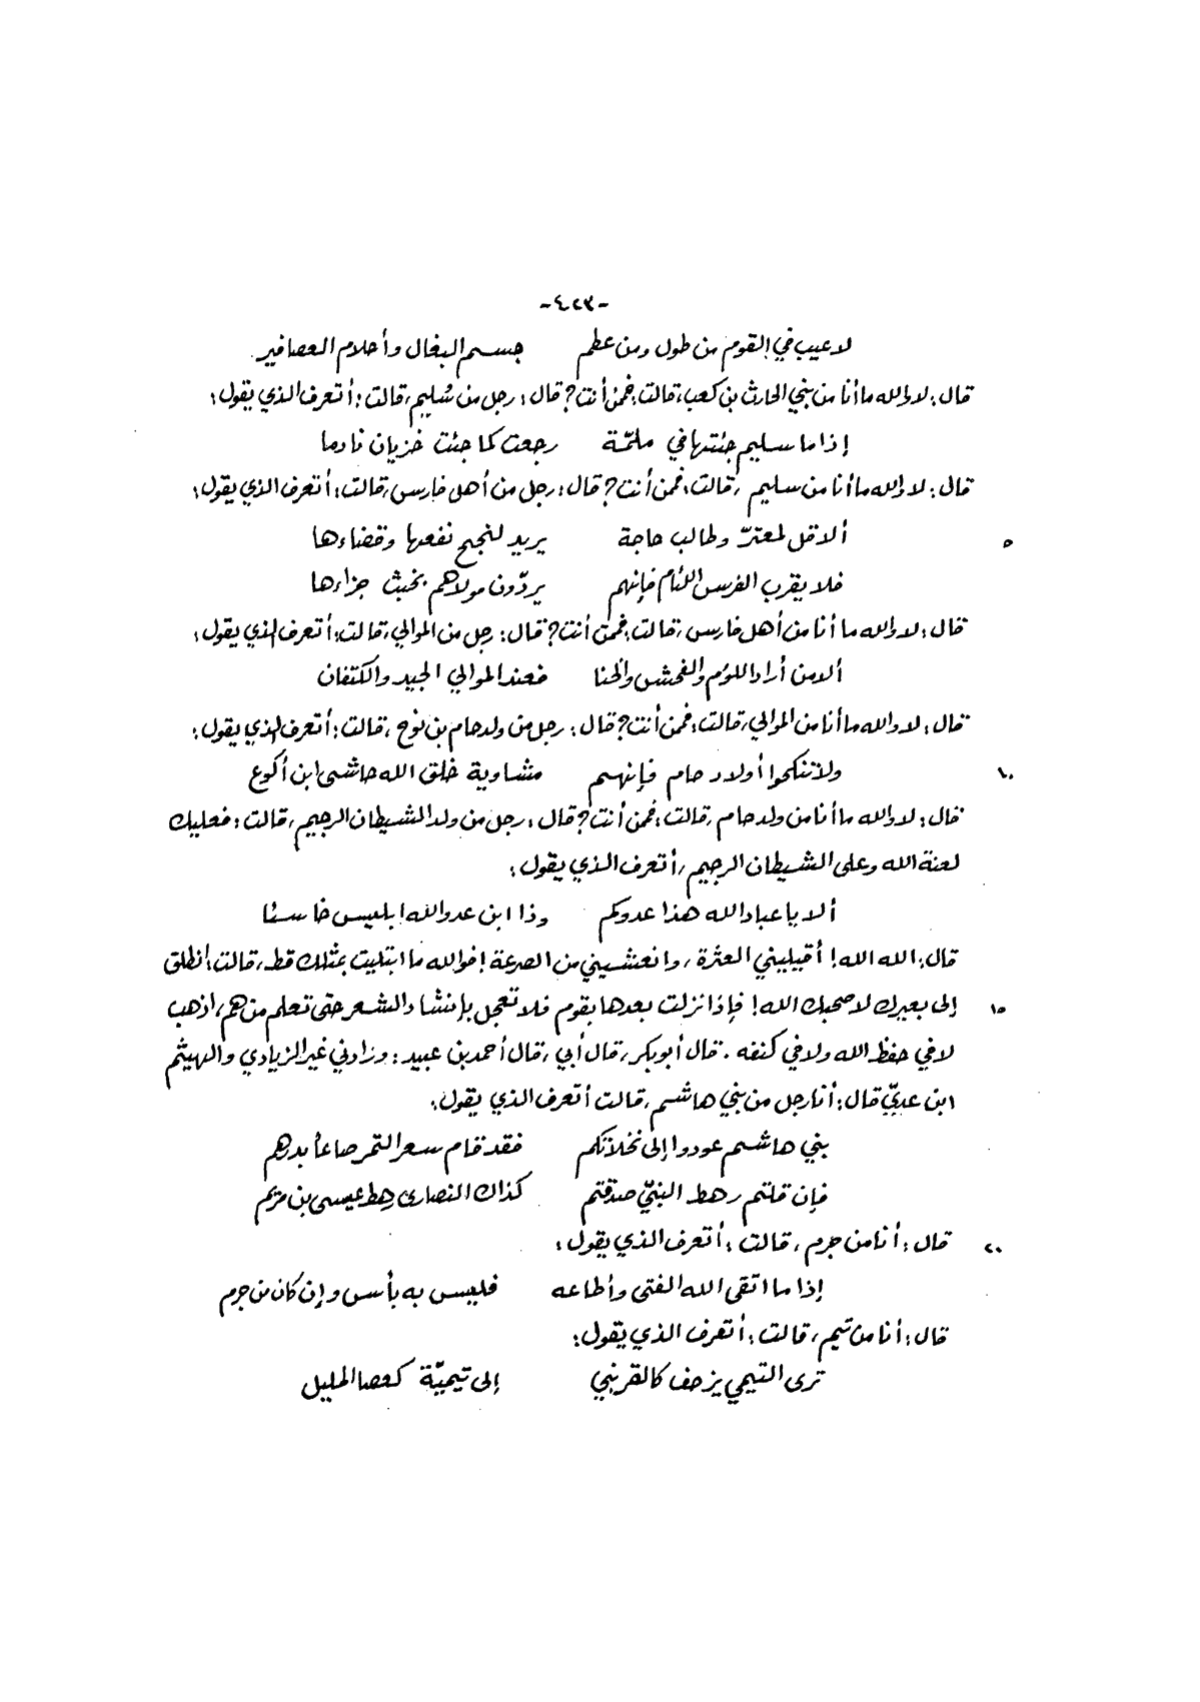 -٤٢٣-
لا عيب في القوم من طول ومن عظم جسم البغال وأحلام العصافير
قال: لا والله ما أنا من بني الحارث بن كعب، قالت: فمن أنت؟ قال: رجل من سُليم، قالت: أتعرف الذي يقول:
إذا ما سليم جئتها في ملمّة رجعت كما جئت خزيان نادما
قال: لا والله ما أنا من سليم، قالت: فمن أنت؟ قال: رجل من أهل فارس، قالت: أتعرف الذي يقول:
ألا قل لمعترّ وطالب حاجة يريد لنجح نفعها وقضاءها ٥
فلا يقرب الفرس اللئام فإنهم يردّون مولاهم بخبث جزاءها
قال: لا والله ما أنا من أهل فارس، قالت: فمن أنت؟ قال: رجل من الموالي، قالت: أتعرف الذي يقول:
ألا من أراد اللؤم والفحش والخنا فعند الموالي الجيد والكتفان
قال: لا والله ما أنا من الموالي، قالت: فمن أنت؟ قال: رجل من ولد حام بن نوح، قالت: أتعرف الذي يقول:
ولا تنكحوا أولاد حام فإنهم مشاوية خلق الله حاشى ابن أكوع ١٠
قال: لا والله ما أنا من ولد حام، قالت: فمن أنت؟ قال: رجل من ولد الشيطان الرجيم، قالت: فعليك
لعنة الله وعلى الشيطان الرجيم، أتعرف الذي يقول:
ألا يا عباد الله هذا عدوكم وذا ابن عدو الله إبليس خاسئا
قال: الله الله! أقيليني العثرة، وانعشيني من الصرعة! فوالله ما ابتليت بمثلك قط، قالت: انطلق
إلى بعيرك لا صحبك الله! فإذا نزلت بعدها بقوم فلا تعجل بإنشاد الشعر حتى تعلم من هم، اذهب ١٥
لا في حفظ الله ولا في كنفه. قال أبو بكر، قال أبي، قال أحمد بن عبيد: وزادني غير الزيادي والهيثم
ابن عديّ قال: أنا رجل من بني هاشم، قالت أتعرف الذي يقول:
بني هاشم عودوا إلى نخلاتكم فقد قام سعر التمر صاعاً بدرهم
فإن قلتم رهط النبيّ صدقتم كذاك النصارى رهط عيسى بن مريم
قال: أنا من جرم، قالت: أتعرف الذي يقول: ٢٠
إذا ما اتقى الله الفتى وأطاعه فليس به بأس وإن كان من جرم
قال: أنا من تيم، قالت: أتعرف الذي يقول:
ترى التيمي يزحف كالقرنبي إلى تيميّة كعصا المليل